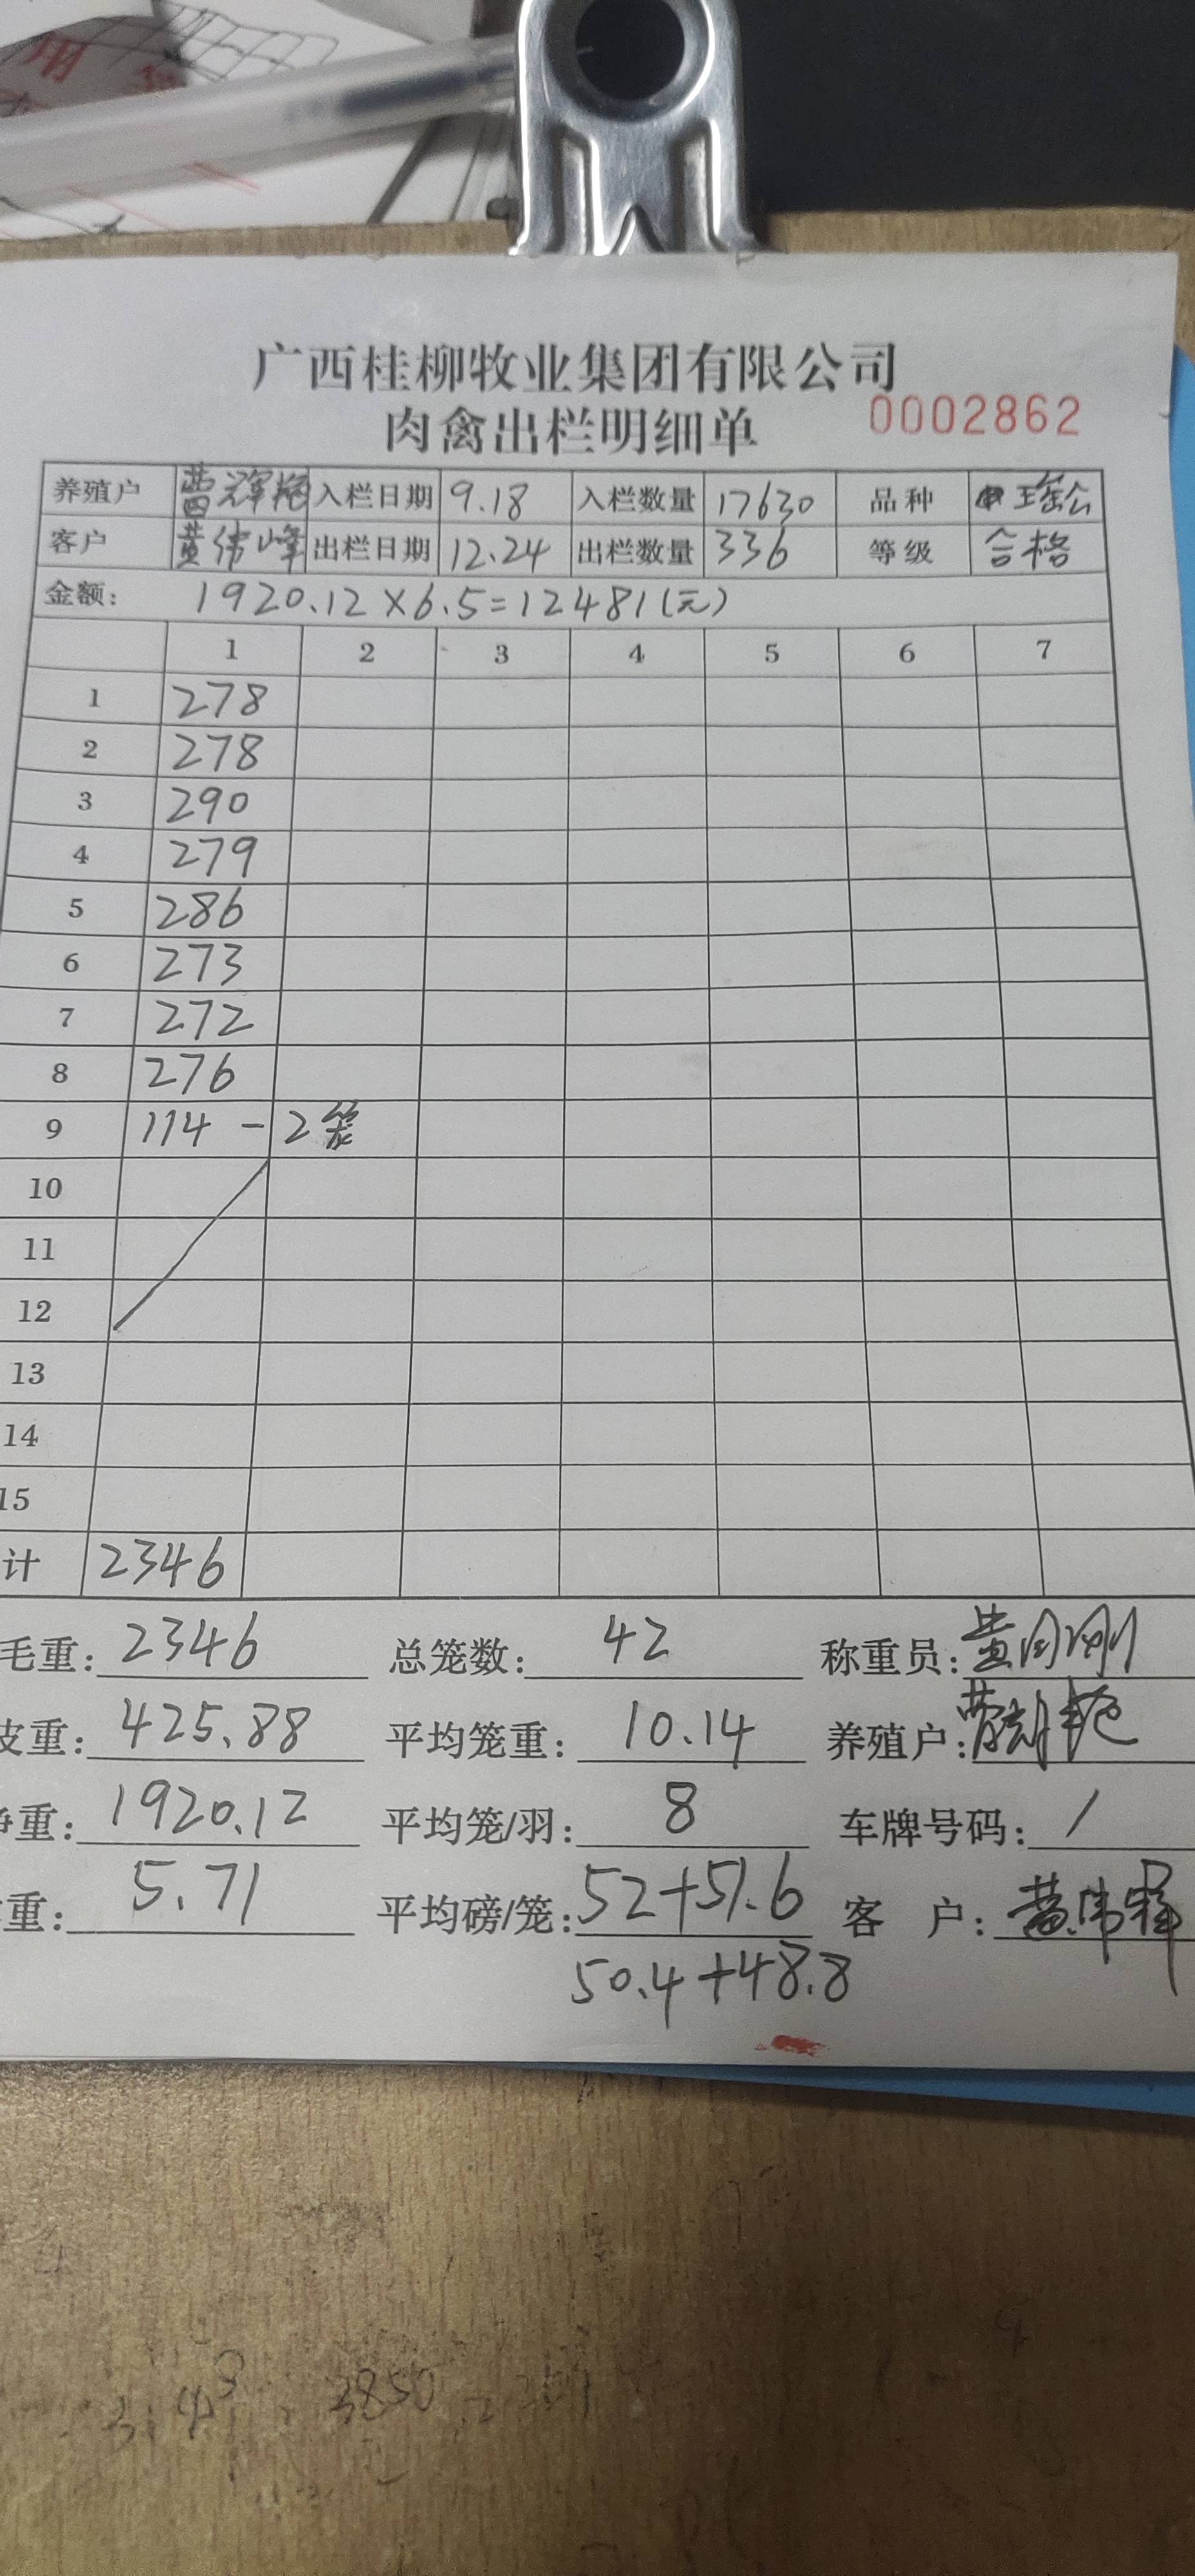 广西桂柳牧业集团有限公司
肉禽出栏明细单 0002862
养殖户 曹辉艳 入栏日期 9.18 入栏数量 17630 品种 瑶公
客户 黄伟峰 出栏日期 12.24 出栏数量 336 等级 合格
金额: 1920.12×6.5=12481(元)
1 2 3 4 5 6 7
1 278
2 278
3 290
4 279
5 286
6 273
7 272
8 276
9 114-2笼
10
11
12
13
14
15
计 2346
毛重: 2346 总笼数: 42 称重员:
皮重: 425.88 平均笼重: 10.14 养殖户:
净重: 1920.12 平均笼/羽: 8 车牌号码: /
重: 5.71 平均磅/笼: 52+51.6 客 户: 黄伟峰
50.4+48.8